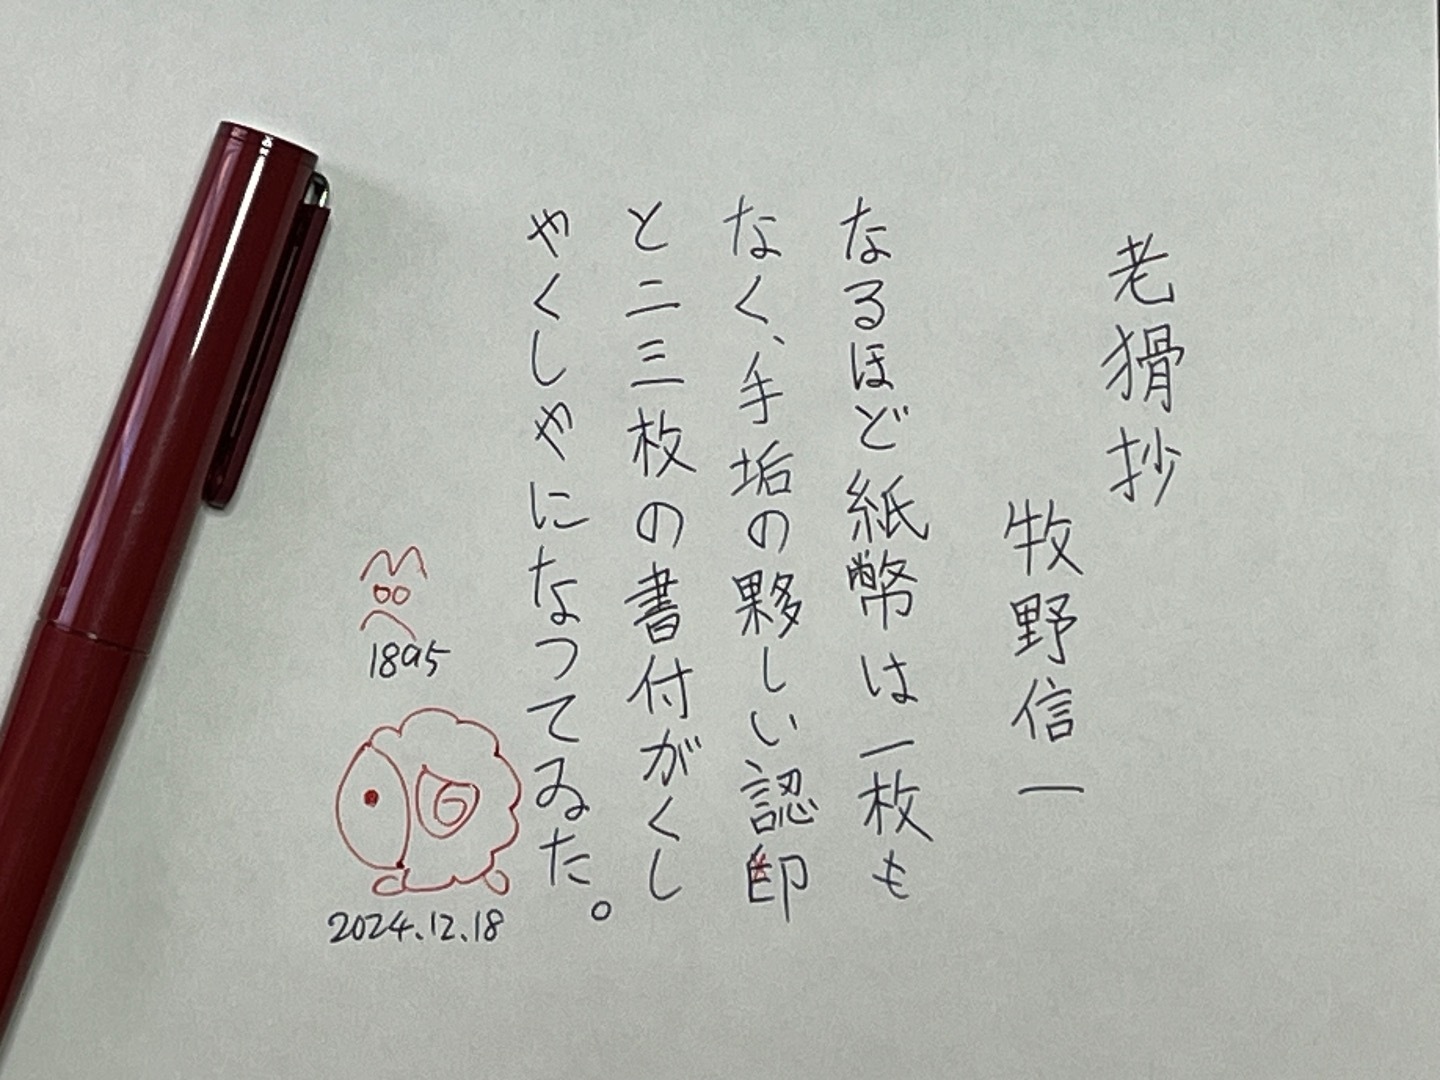 老猾抄
牧野信一
なるほど紙幣は一枚も
なく、手垢の夥しい認印
と二三枚の書付がくし
やくしやになつてゐた。
1895
2024.12.18